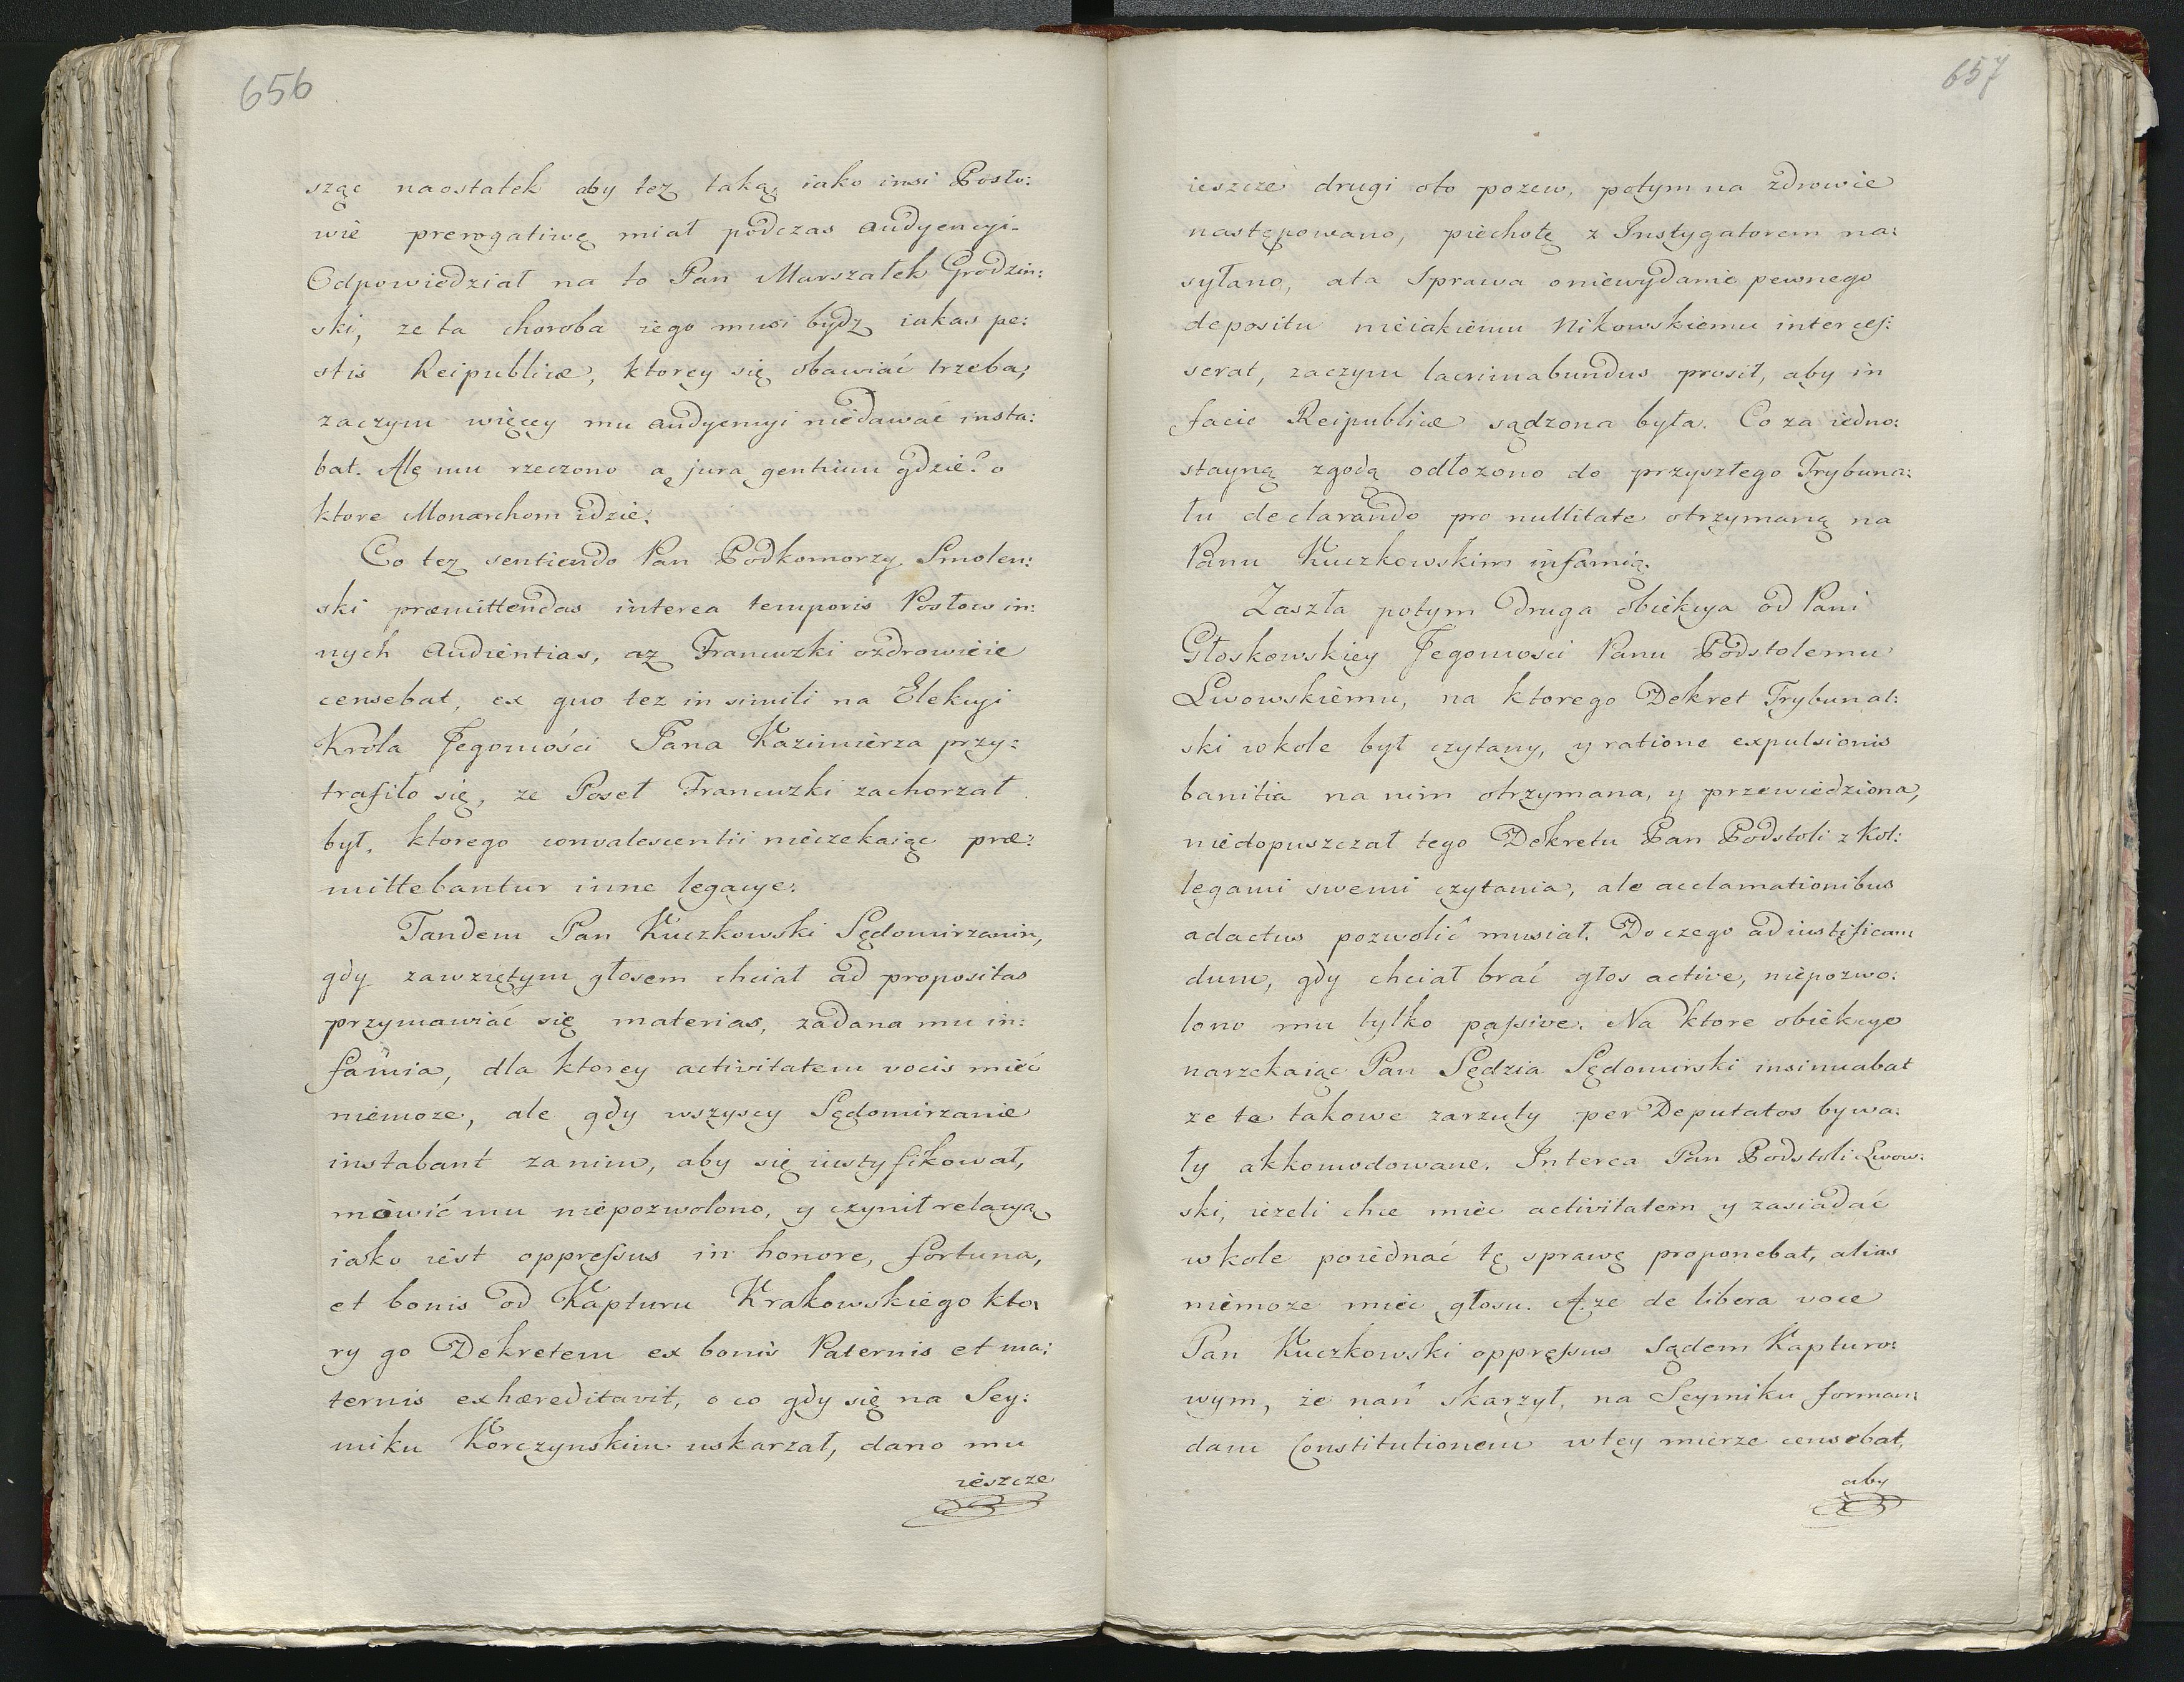 656
sząc naostatek aby tez taką iako insi Posło:
wie prerogatiwę miał podczas audyencyi.
Odpowiedział na to Pan Marszałek Grodzin:
ski, ze ta choroba iego musi bydz iakas pe:
stis Reipublicæ, ktorey się obawiać trzeba,
zaczym więcey mu audyencyi niedawać insta:
bat. Ale mu rzeczono a jura gentium gdzie? o
ktore Monarchom idzie.
Co tez sentiendo Pan Podkomorzy Smolen:
ski præmittendas interea temporis Posłow in:
nych Audientias, az Francuzki ozdrowieie
censebat, ex quo tez in simili na Elekcyi
Krola Jegomości Jana Kazimierza przy:
trafiło się, ze Poseł Francuzki zachorzał
był, ktorego convalescentii nieczekaiąc præ:
mittebantur inne legacye.
Tandem Pan Kuczkowski Sędomirzanin,
gdy zawziętym głosem chciał ad propositas
przymawiać się materias, zadana mu in:
famia, dla ktorey activitatem vocis mieć
niemoze, ale gdy wszyscy Sędomirzanie
instabant zanim, aby się iustyfikował,
mówić mu niepozwolono, y czynił relacyą
iako iest oppressus in honore, fortuna,
et bonis od Kapturu Krakowskiego kto:
ry go Dekretem ex bonis Paternis et ma:
ternis exhæreditavit, o co gdy się na Sey:
miku Korczynskim uskarzał, dano mu
ieszcze
657
ieszcze drugi oto pozew, potym na zdrowie
następowano, piechotę z Instygatorem na:
syłano, ata Sprawa oniewydanie pewnego
depositu nieiakiemu Nikowskiemu interces:
serat, zaczym lacrimabundus prosił, aby in
facie Reipublicæ sądzona była. Co za iedno:
stayną zgodą odłozono do przyszłego Trybuna:
łu declarando pro nullitate otrzymaną na
Panu Kuczkowskim infamią.
Zaszła potym druga obiekcya od Pani
Głoskowskiey Jegomosci Panu Podstolemu
Lwowskiemu, na ktorego Dekret Trybunal:
ski w kole był czytany, y ratione expulsionis
banitia na nim otrzymana, y przewiedziona,
niedopuszczał tego Dekretu Pan Podstoli z kol:
legami swemi czytania, ale acclamationibus
adactus pozwolić musiał. Do czego ad iustifican:
dum, gdy chciał brać głos active, niepozwo:
lono mu tylko passive. Na ktore obiekcye
narzekaiąc Pan Sędzia Sędomirski insinuabat
ze te takowe zarzuty per Deputatos bywa:
ły akkomodowane. Interea Pan Podstoli Lwow:
ski, iezeli chce miec activitatem y zasiadać
w kole poiednać tę sprawę proponebat, alias
niemoze miec głosu. A ze de libera voce
Pan Kuczkowski oppressus Sądem Kapturo:
wym, że nań skarzył, na Seymiku forman:
dam Constitutionem wtey mierze censebat,
aby